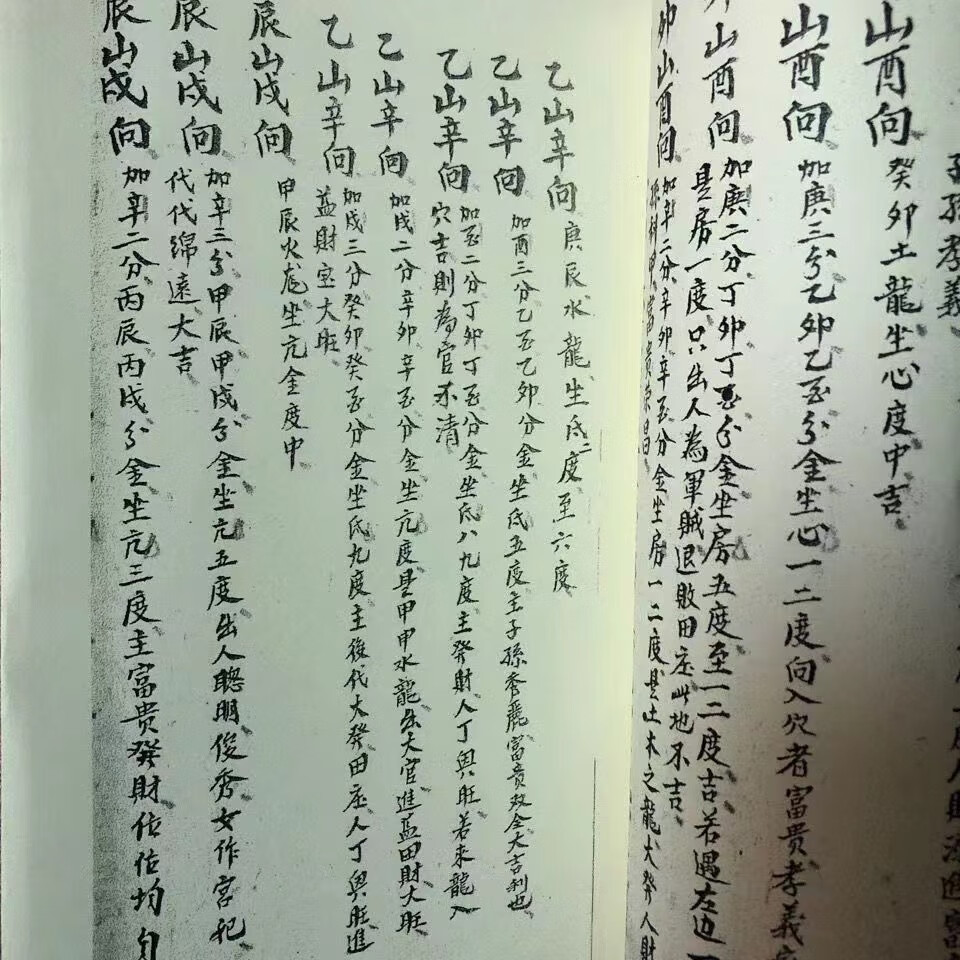 子孫孝義
山酉向 癸卯土龍坐心度中吉
山酉向 加庚三分乙卯乙酉分金坐心一二度向入穴者富贵孝義
山酉向 加庚二分丁卯丁酉分金坐房五度至一二度吉若遇左边一
是房一度只出人為軍賊退敗田庄此地不吉
卯山酉向 加辛二分辛卯辛酉分金坐房一二度是土木之龍大癸人財
富貴榮昌
乙山辛向 庚辰水龍坐氐二度至六度
乙山辛向 加酉三分乙酉乙卯分金坐氐五度主子孫秀麗富貴双全大吉利也
乙山辛向 加酉二分丁卯丁酉分金坐氐八九度主癸財人丁興旺若來龍入
穴吉則為官不清
乙山辛向 加戍二分辛卯辛酉分金坐亢度是甲申水龍出大官進益田財大旺
乙山辛向 加戍三分癸卯癸酉分金坐氐九度主後代大癸田庄人丁興旺進
益財宝大旺
辰山戍向 甲辰火龙坐亢金度中
辰山戍向 加辛三分甲辰甲戍分金坐亢五度出人聰明俊秀女作宮妃
代代綿遠大吉
辰山戍向 加辛二分丙辰丙戍分金坐亢三度主富貴癸財位位均匀